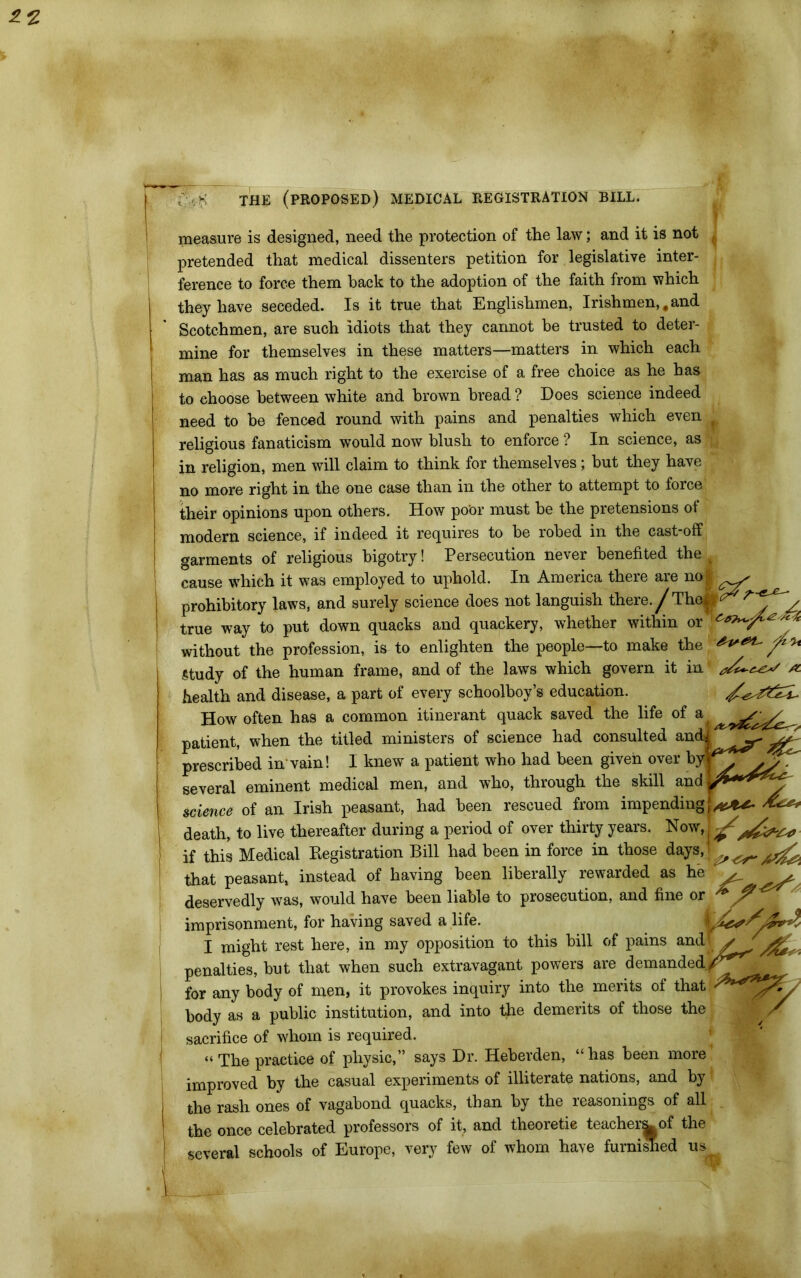 22
THE (PROPOSED) MEDICAL REGISTRATION BILL.
measure is designed, need the protection of the law; and it is not
pretended that medical dissenters petition for legislative inter-
ference to force them back to the adoption of the faith from which
they have seceded. Is it true that Englishmen, Irishmen, and
Scotchmen, are such idiots that they cannot be trusted to deter-
mine for themselves in these matters—matters in which each
man has as much right to the exercise of a free choice as he has
to choose between white and brown bread? Does science indeed
need to be fenced round with pains and penalties which even
religious fanaticism would now blush to enforce? In science, as
in religion, men will claim to think for themselves; but they have
no more right in the one case than in the other to attempt to force
their opinions upon others. How poor must be the pretensions of
modern science, if indeed it requires to be robed in the cast-off
garments of religious bigotry! Persecution never benefited the
cause which it was employed to uphold. In America there are no
prohibitory laws, and surely science does not languish there. / The
true way to put down quacks and quackery, whether within or
without the profession, is to enlighten the people—to make the
study of the human frame, and of the laws which govern it in
health and disease, a part of every schoolboy's education.
How often has a common itinerant quack saved the life of a
patient, when the titled ministers of science had consulted and
prescribed in vain! I knew a patient who had been given over by
several eminent medical men, and who, through the skill and
science of an Irish peasant, had been rescued from impending
death, to live thereafter during a period of over thirty years. Now,
if this Medical Registration Bill had been in force in those days,
that peasant, instead of having been liberally rewarded as he
deservedly was, would have been liable to prosecution, and fine or
imprisonment, for having saved a life.
I might rest here, in my opposition to this bill of pains and
penalties, but that when such extravagant powers are demanded
for any body of men, it provokes inquiry into the merits of that
body as a public institution, and into the demerits of those the
sacrifice of whom is required.
"The practice of physic," says Dr. Heberden, "has been more
improved by the casual experiments of illiterate nations, and by
the rash ones of vagabond quacks, than by the reasonings of all
the once celebrated professors of it, and theoretic teachers of the
several schools of Europe, very few of whom have furnished us